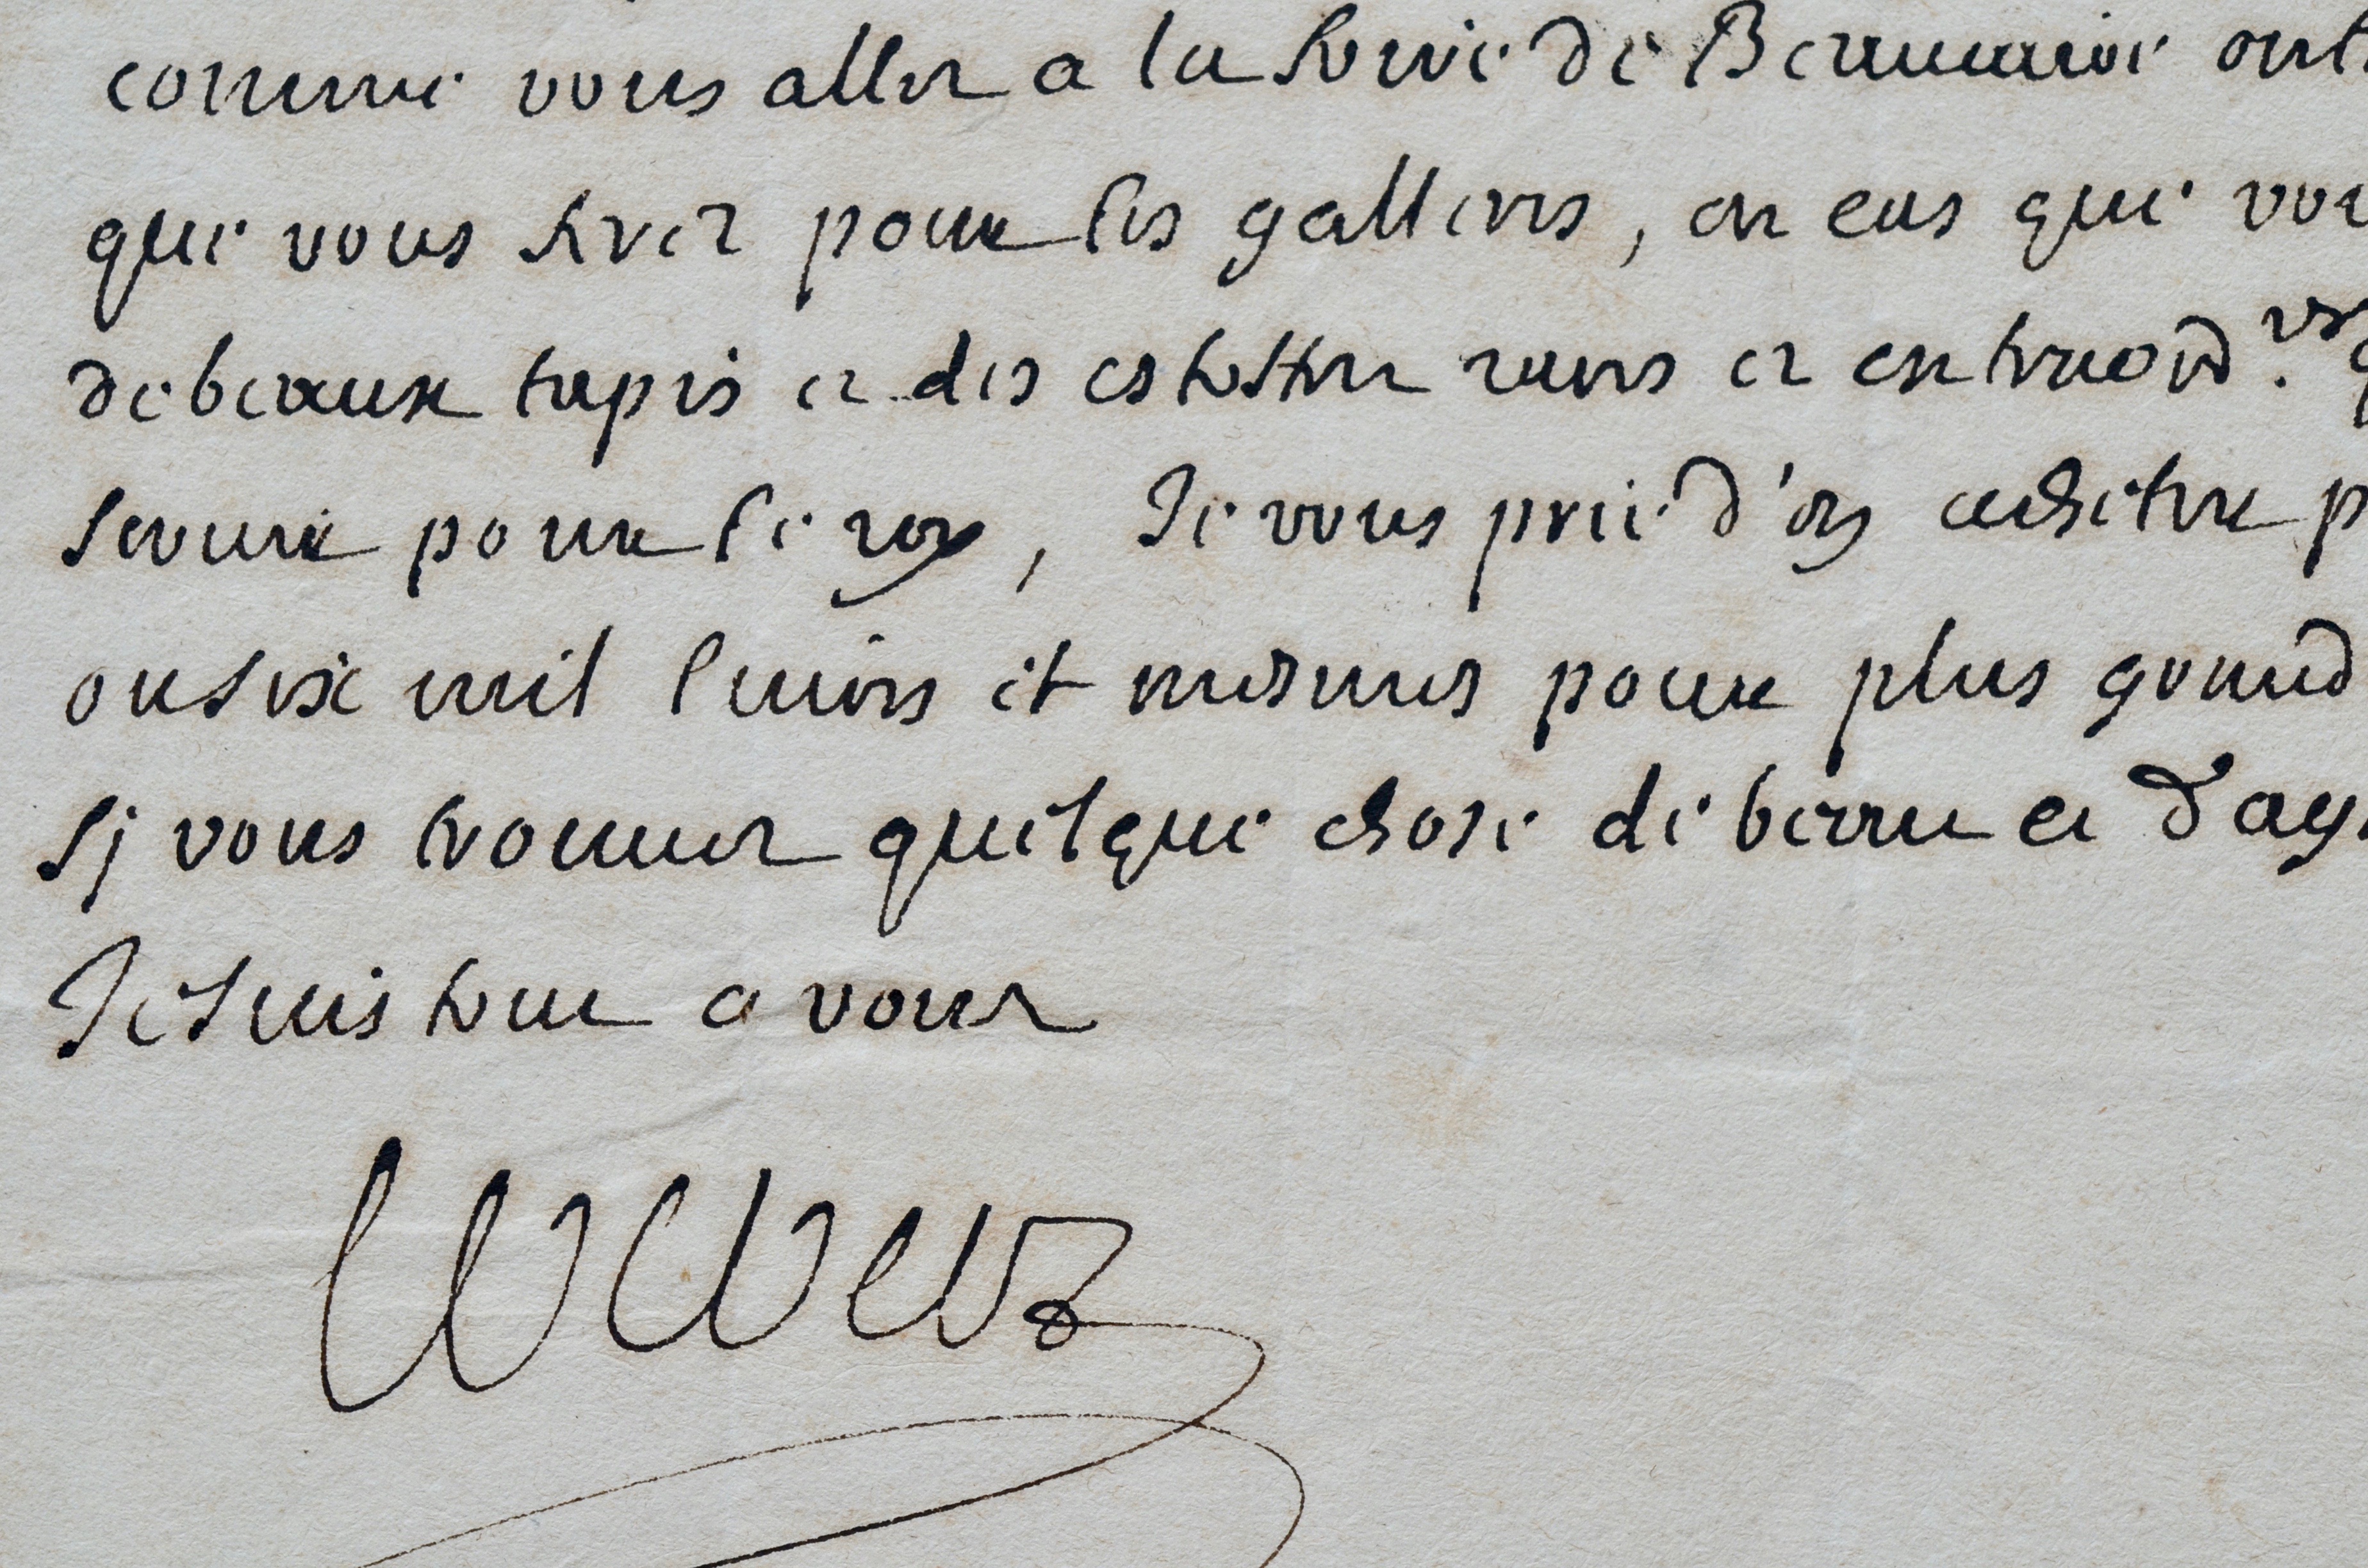 comme vous allez a la foire de Beaucaire
que vous ferez pour les galleres, en cas que
de beaux tapis et des estoffes rares et extraord.res
servir pour le roy, Je vous prie d'en achetter
ou six mil livres et mesmes pour plus grand
sj vous trouvez quelque chose de beau et
Je suis tout a vous